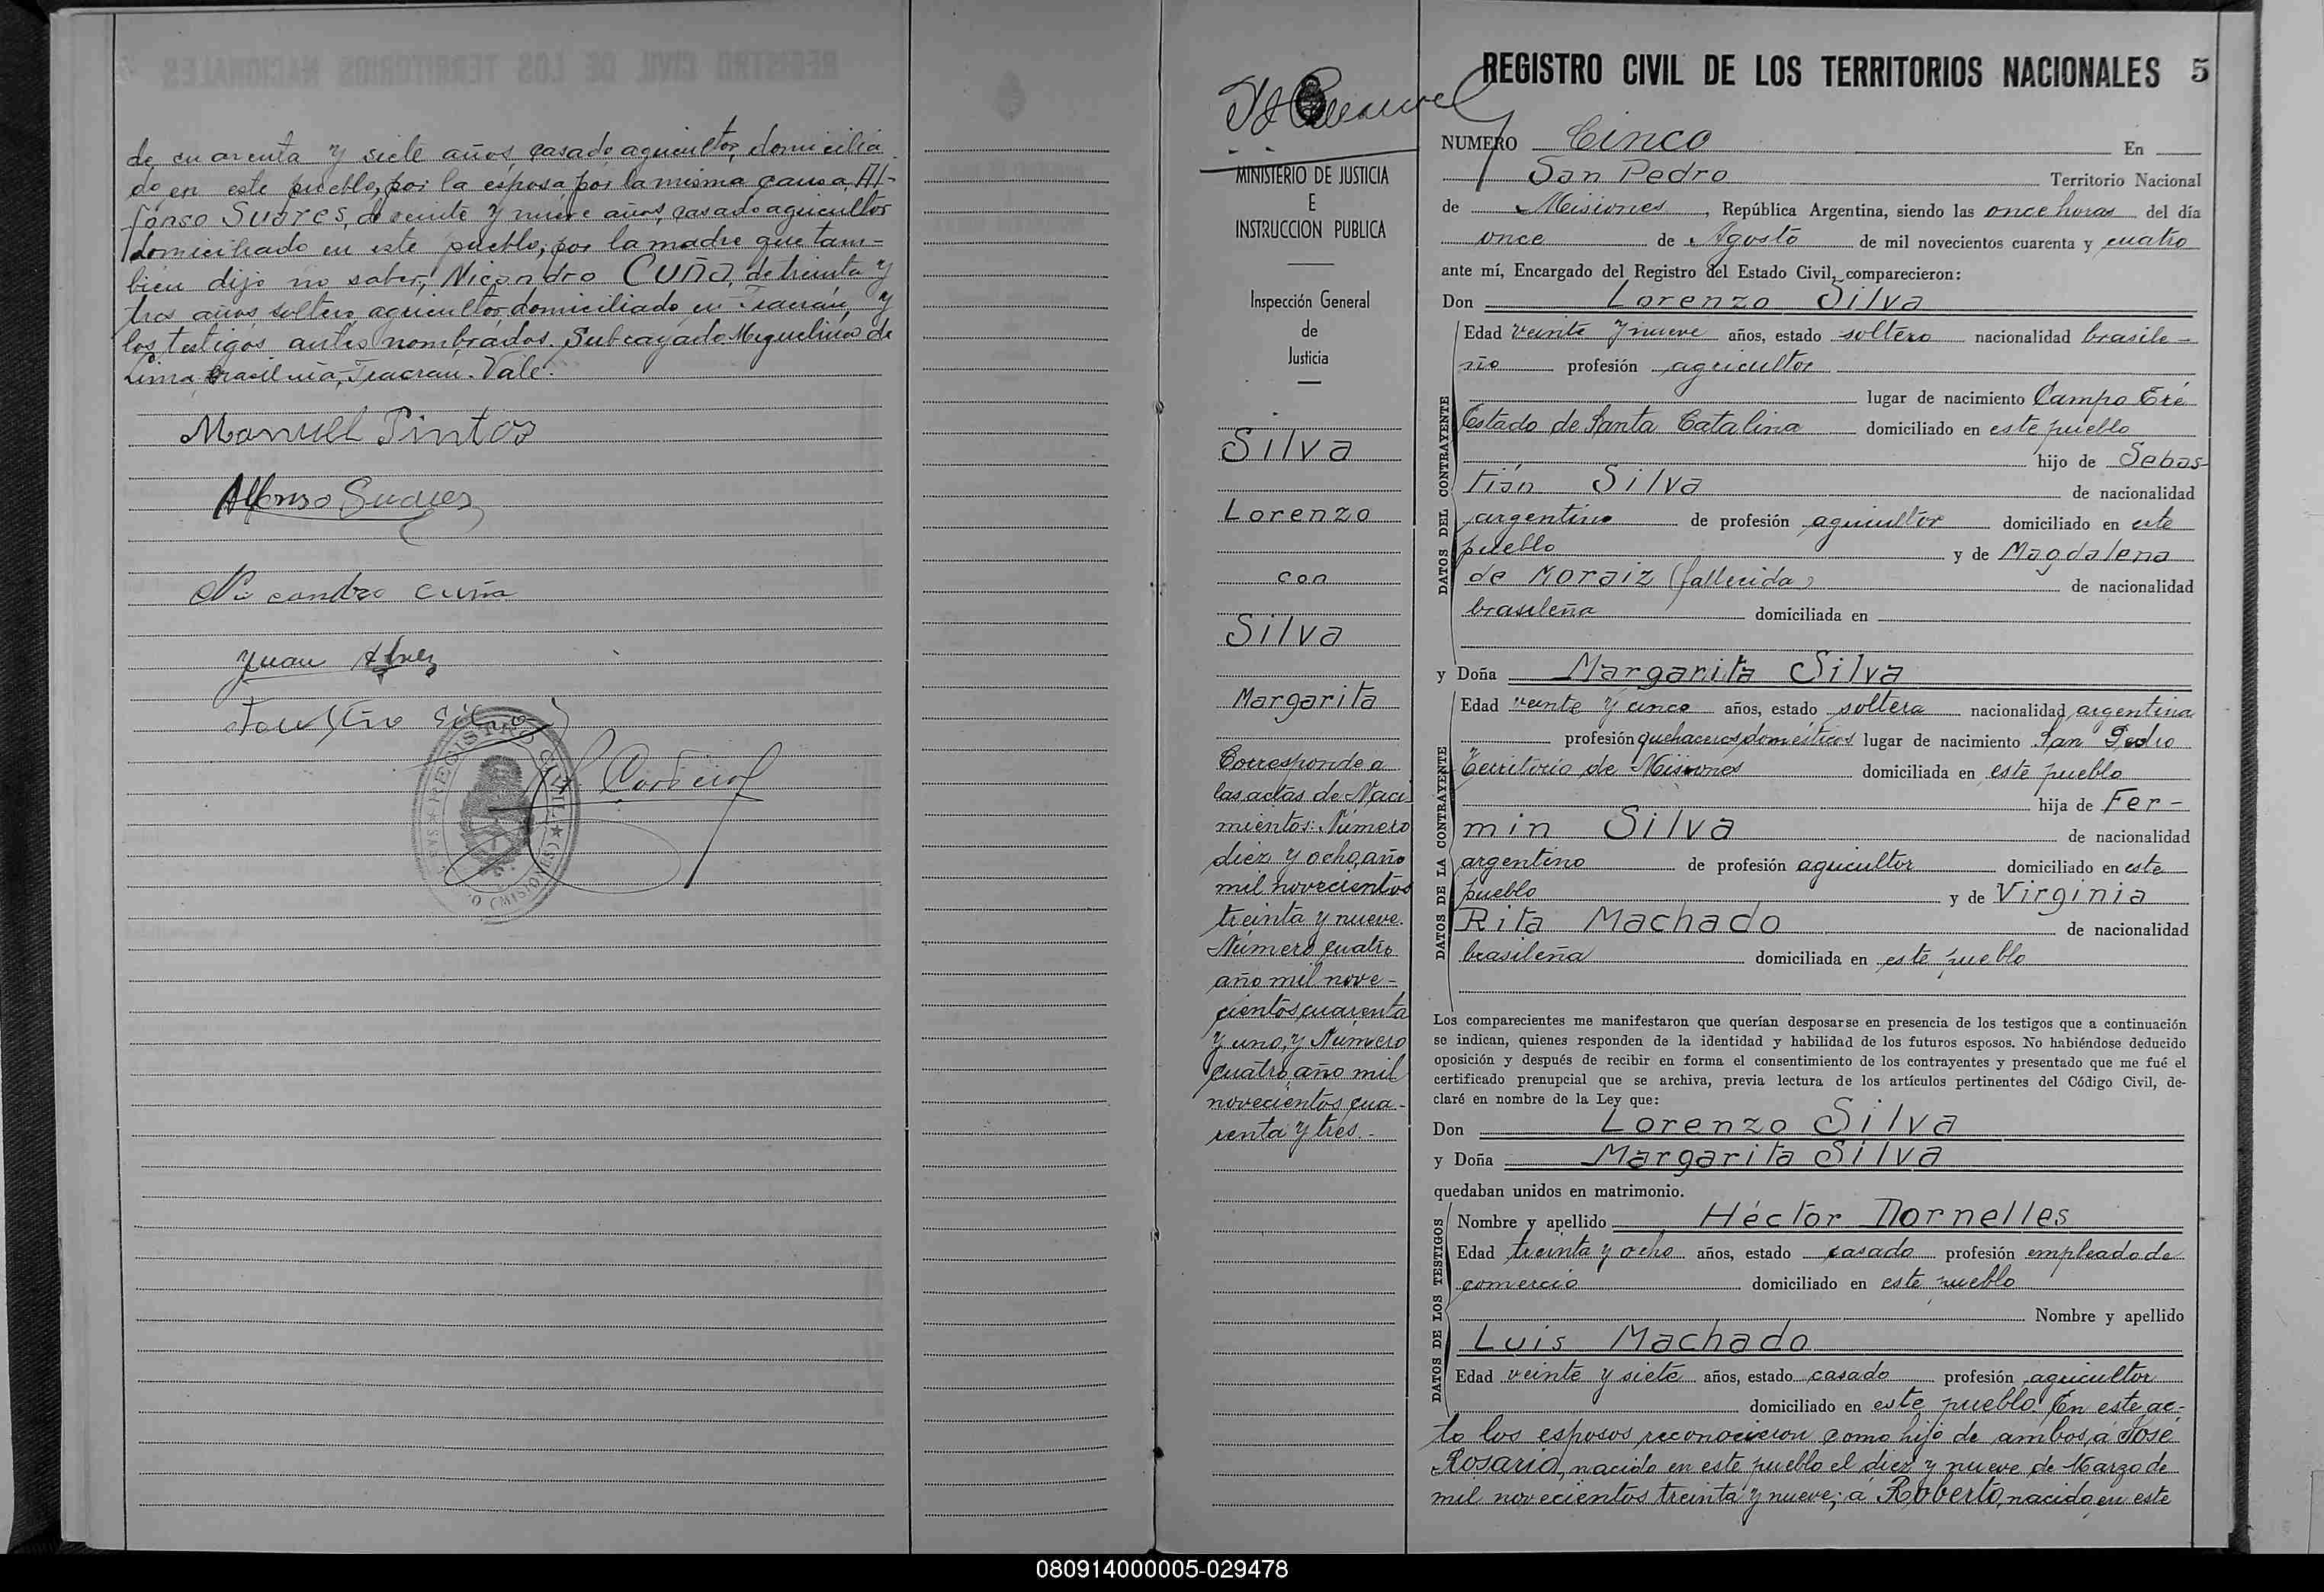 de cuarenta y siete años, casado, agricultor, domicilia
do en este pueblo, por la esposa por la misma causa, Al-
fonso Suáres, de veinte y nueve años, casado agricultor
domiciliado en este pueblo; por la madre que tam-
bién dijo no saber, Nicandro Cuña, de treinta y
tres años soltero agricultor domiciliado en Tracrán, y
los testigos antes nombrados. Subrayado Miguelina de
Lima, brasileña, Tracrán. Vale.
Manuel Pintos
Alfonso Suares
Nicandro Cuña
Juan
REGISTRO CIVIL
REGISTRO CIVIL DE LOS TERRITORIOS NACIONALES 5
NUMERO Cinco En
San Pedro Territorio Nacional
de Misiones, República Argentina, siendo las once horas del día
once de Agosto de mil novecientos cuarenta y cuatro
ante mí, Encargado del Registro del Estado Civil, comparecieron:
Don Lorenzo Silva
Edad veinte y nueve años, estado soltero nacionalidad brasile-
ño profesión agricultor
lugar de nacimiento Campo Eré
Estado de Santa Catalina domiciliado en este pueblo
hijo de Sebas-
tián Silva de nacionalidad
argentino de profesión agricultor domiciliado en este
pueblo y de Magdalena
de Moraiz (fallecida) de nacionalidad
brasileña domiciliada en
y Doña Margarita Silva
Edad veinte y cinco años, estado soltera nacionalidad argentina
profesión quehaceres domésticos lugar de nacimiento San Pedro
Territorio de Misiones domiciliada en este pueblo
hija de Fer-
min Silva de nacionalidad
argentino de profesión agricultor domiciliado en este
pueblo y de Virginia
Rita Machado de nacionalidad
brasileña domiciliada en este pueblo
DATOS DEL CONTRAYENTE
DATOS DE LA CONTRAYENTE
Los comparecientes me manifestaron que querían desposarse en presencia de los testigos que a continuación
se indican, quienes responden de la identidad y habilidad de los futuros esposos. No habiéndose deducido
oposición y después de recibir en forma el consentimiento de los contrayentes y presentado que me fué el
certificado prenupcial que se archiva, previa lectura de los artículos pertinentes del Código Civil, de-
claré en nombre de la Ley que:
Don Lorenzo Silva
y Doña Margarita Silva
quedaban unidos en matrimonio.
Nombre y apellido Héctor Dornelles
Edad treinta y ocho años, estado casado profesión empleado de
comercio domiciliado en este pueblo
Nombre y apellido
Luis Machado
Edad veinte y siete años, estado casado profesión agricultor
domiciliado en este pueblo. En este ac-
to los esposos reconocieron como hijo de ambos, a José
Rosario, nacido en este pueblo el diez y nueve de Marzo de
mil novecientos treinta y nueve; a Roberto, nacido en este
DATOS DE LOS TESTIGOS
MINISTERIO DE JUSTICIA
E
INSTRUCCION PUBLICA
Inspección General
de
Justicia
Silva
Lorenzo
con
Silva
Margarita
Corresponde a
las actas de Naci
mientos: Número
diez y ocho, año
mil novecientos
treinta y nueve.
Número cuatro
año mil nove-
cientos cuarenta
y uno, y Número
cuatro, año mil
novecientos cua-
renta y tres.-
080914000005-029478